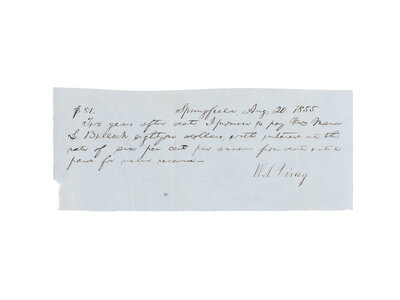 $81. Springfield Aug. 20 1855
Two years after date I promise to pay Mrs Maria
L. Bullock eighty one dollars with interest at the
rate of six per cent per annum from date until
paid for value received—
W. Viney